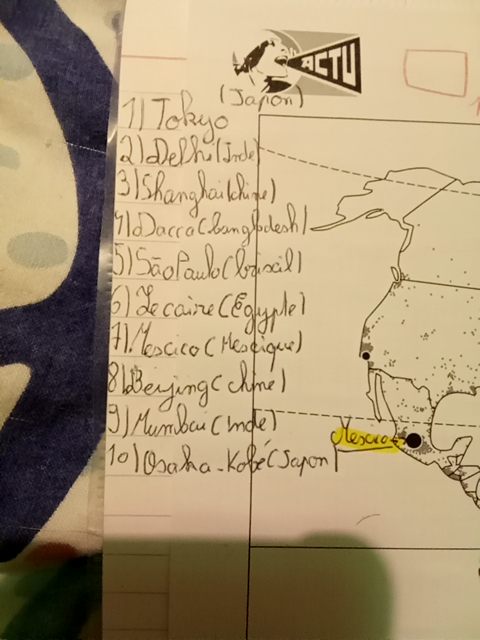 ACTU
(Japon)
1) Tokyo
2) Delhi (Inde)
3) Shanghai (chine)
4) Dacca (bangladesh)
5) São Paulo (brésil)
6) Le caire (Égypte)
7) Mescico (Mescique)
8) Beijing (chine)
9) Mumbai (Inde)
Mescico
10) Osaka-Kobé (Japon)